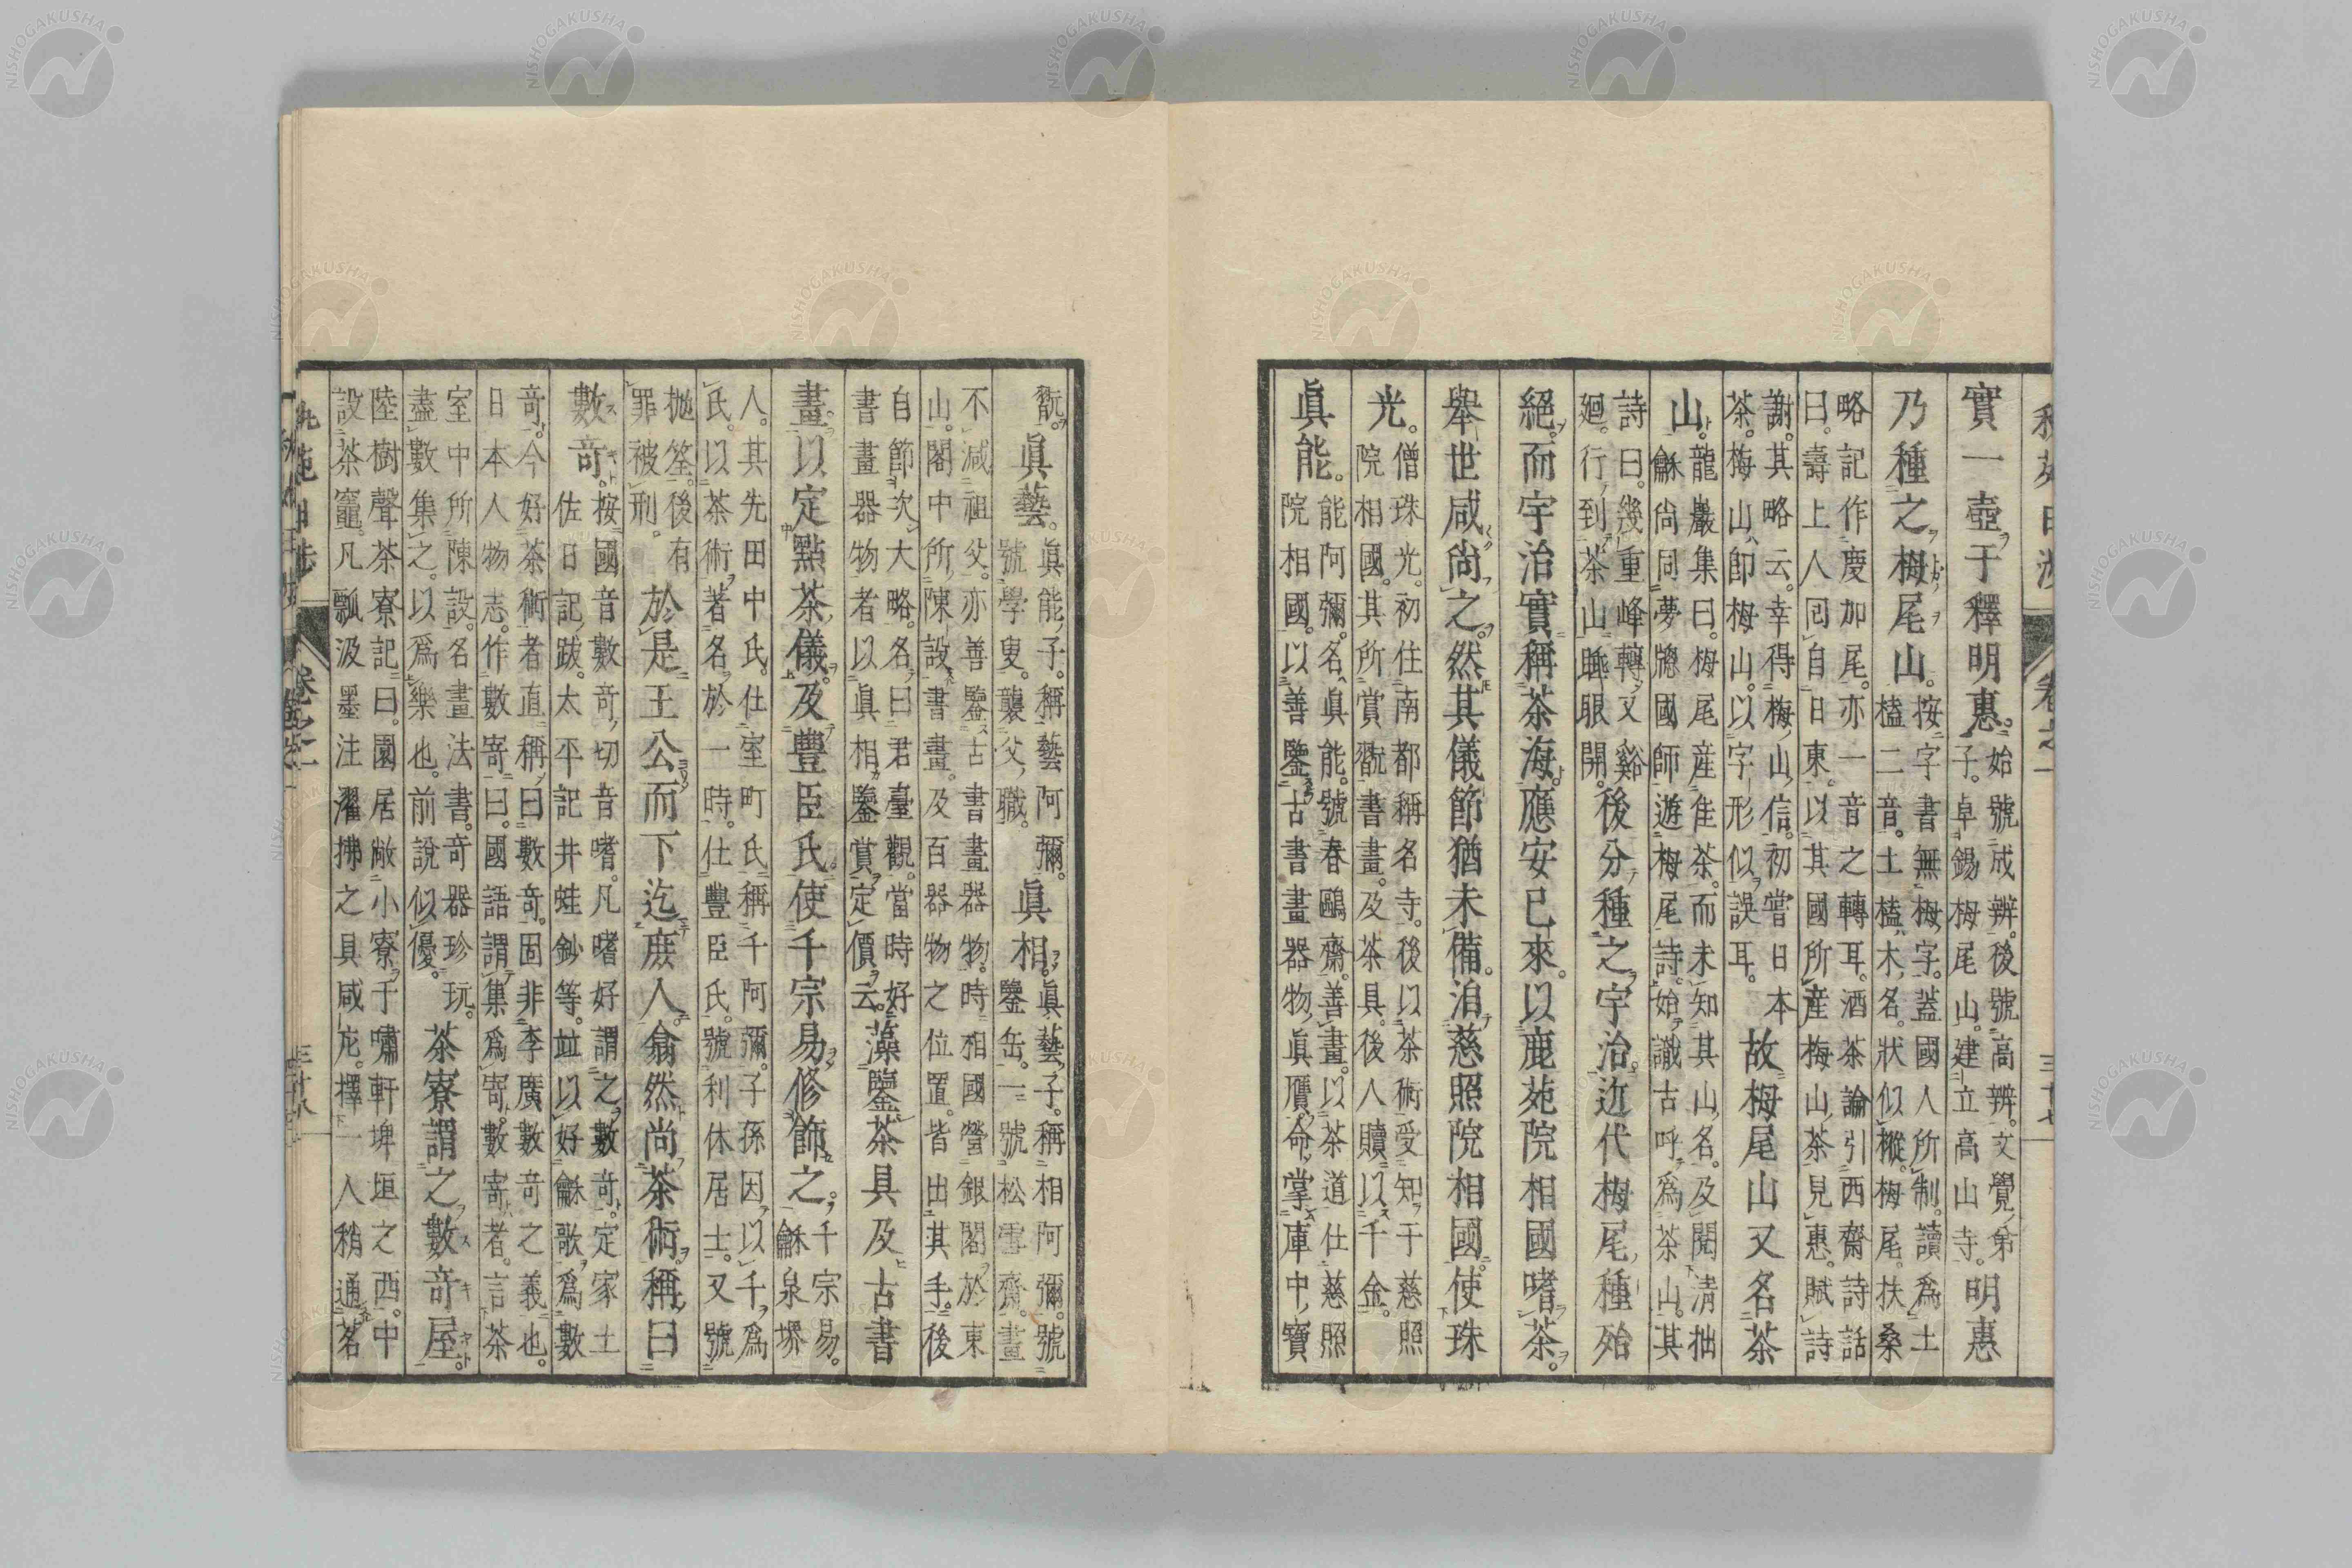 秇苑日渉 卷之一 三十七
實一壺于釋明惠。始號成辨。後號高辨。文覺弟
子。卓錫栂尾山。建立高山寺。明惠
乃種之栂尾山。按字書無栂字。蓋國人所制。讀爲土
榼二音。土榼木名。狀似樅。栂尾。扶桑
略記作慶加尾。亦一音之轉耳。酒茶論引西齋詩話
曰。壽上人囘自日東。以其國所產梅山茶見惠。賦詩
謝。其略云。幸得梅山信。初嘗日本
茶。梅山即栂山。以字形似誤耳。故栂尾山又名茶
山。龍巖集曰。栂尾產佳茶。而未知其山名。及閱淸拙
龢尙同夢牕國師遊栂尾詩。始識古呼爲茶山。其
詩曰。幾重峰轉又谿
廻。行到茶山睡眼開。後分種之宇治。近代栂尾種殆
絕。而宇治實稱茶海。應安已來。以鹿苑院相國嗜茶。
舉世咸尙之。然其儀節猶未備。洎慈照院相國。使珠
光。僧珠光。初住南都稱名寺。後以茶術受知于慈照
院相國。其所賞翫書畫。及茶具。後人贖以千金。
眞能。能阿彌。名眞能。號春鷗齋。善畫。以茶道仕慈照
院相國。以善鑒古書畫器物眞贋。命掌庫中寶
翫。眞藝。眞能子。稱藝阿彌。
號學叟。襲父職。眞相。眞藝子。稱相阿彌。號
鑒岳。一號松雪齋。畫
不減祖父。亦善鑒古書畫器物。時相國營銀閣於東
山。閣中所陳設書畫。及百器物之位置。皆出其手。後
自節次大略。名曰君臺觀。當時好
書畫器物者以眞相鑒賞定價云。藻鑒茶具及古書
畫。以定點茶儀。及豐臣氏使千宗易修飾之。千宗易。
龢泉堺
人。其先田中氏。仕室町氏。稱千阿彌。子孫因以千爲
氏。以茶術著名於一時。仕豐臣氏。號利休居士。又號
拋筌。後有
罪被刑。於是王公而下迄庶人。翕然尚茶術。稱曰
數奇。按國音數奇切音嗜。凡嗜好謂之數奇。定家士
佐日記跋。太平記井蛙鈔等。並以好龢歌爲數
奇。今好茶術者直稱曰數奇。固非李廣數奇之義也。
日本人物志。作數寄曰。國語謂集爲寄。數寄者。言茶
室中所陳設。名畫法書。奇器珍玩。
盡數集之。以爲樂也。前說似優。茶寮謂之數奇屋。
陸樹聲茶寮記曰。園居敞小寮于嘯軒埤垣之西。中
設茶竈。凡瓢汲罌注濯拂之具咸庀。擇一人稍通茗
秇苑日渉 卷之一 三十八